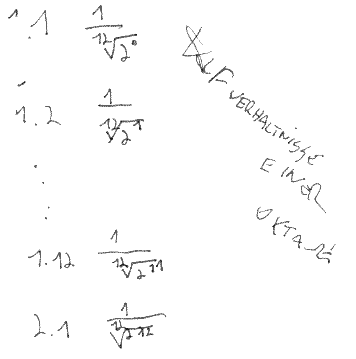 1.1 1/¹²√2⁰
1.2 1/¹²√2¹
.
.
.
1.12 1/¹²√2¹¹
2.1 1/¹²√2¹²
VERHÄLTNISSE
EINER
OKTAVE